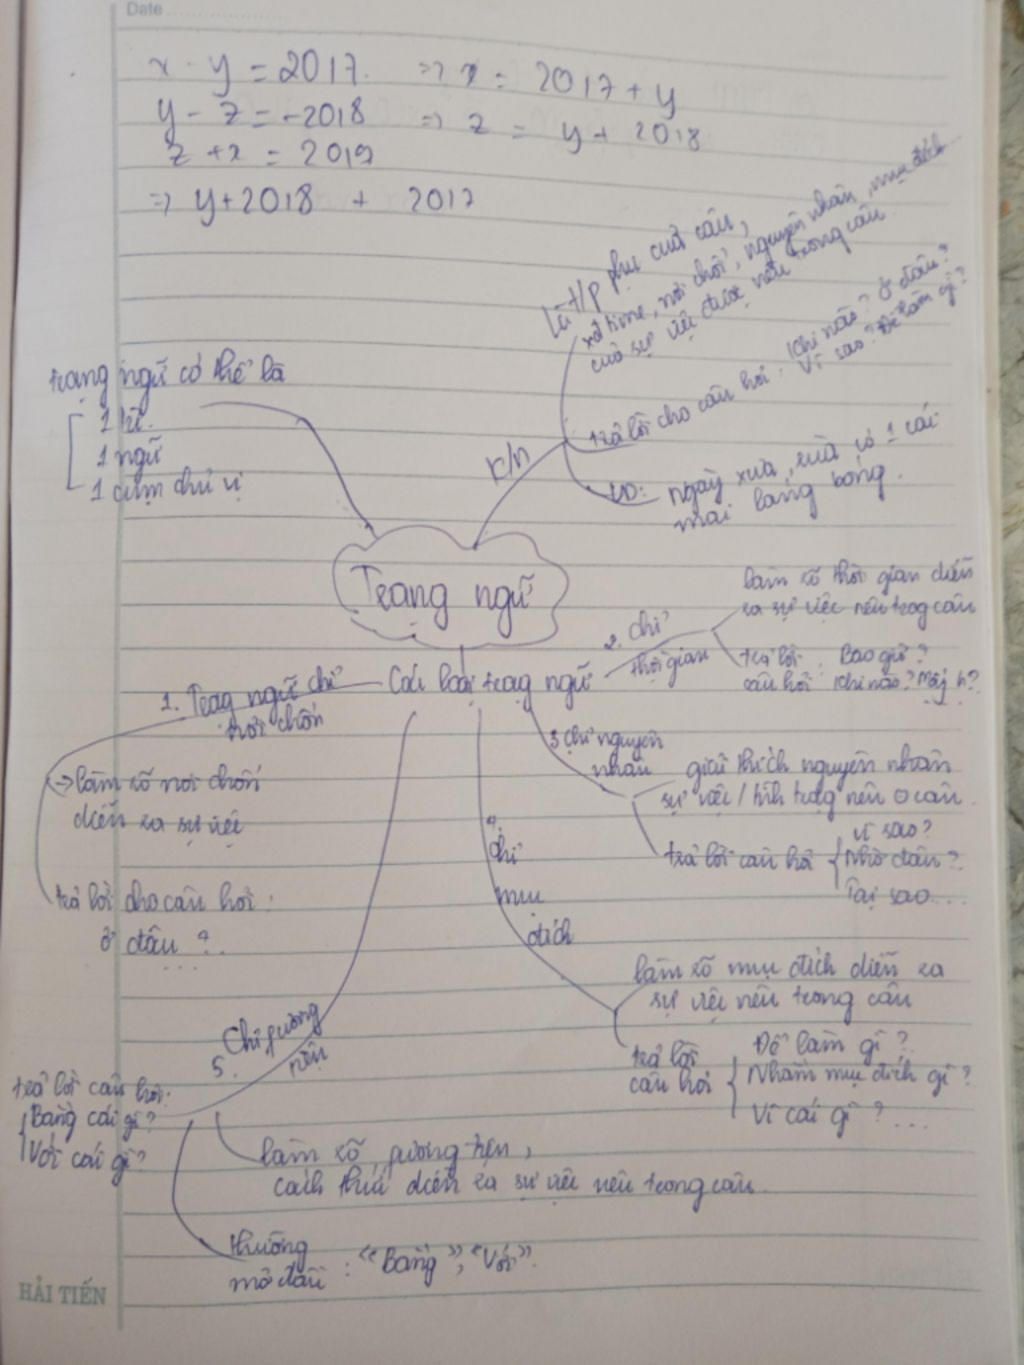 Date
x - y = 2017. => x = 2017 + y
y - z = -2018 => z = y + 2018
z + x = 2019
=> y+2018 + 2017
Là t/p phụ của câu,
xđ time, nơi chốn, nguyên nhân, mục đích
của sự việc được nêu trong câu
trả lời cho câu hỏi: Khi nào? Ở đâu?
Vì sao? Để làm gì?
K/n
VD: ngày xửa, xưa có 1 cái
mai lang bóng.
Trạng ngữ có thể là
1 từ.
1 ngữ
1 cụm chủ vị
Trạng ngữ
Các loại trạng ngữ
1. Trạng ngữ chỉ
nơi chốn
-> làm rõ nơi chốn
diễn ra sự việc
trả lời cho câu hỏi:
ở đâu ?...
2. chỉ
thời gian
làm rõ thời gian diễn
ra sự việc nêu trog câu
trả lời : Bao giờ?
câu hỏi Khi nào? Mấy h?
3 chỉ nguyên
nhân
giải thích nguyên nhân
sự việc / tình trạg nêu ở câu
trả lời câu hỏi
Vì sao?
Nhờ đâu?
Tại sao...
4.
chỉ
mục
đích
làm rõ mục đích diễn ra
sự việc nêu trong câu
trả lời
câu hỏi
Để làm gì ?
Nhằm mục đích gì ?
Vì cái gì ?...
5. Chỉ fương
tiện
trả lời câu hỏi:
Bằng cái gì?
Với cái gì?
làm rõ fương tiện,
cách thức diễn ra sự việc nêu trong câu
thường
mở đầu : "Bằng", "Với".
HẢI TIẾN